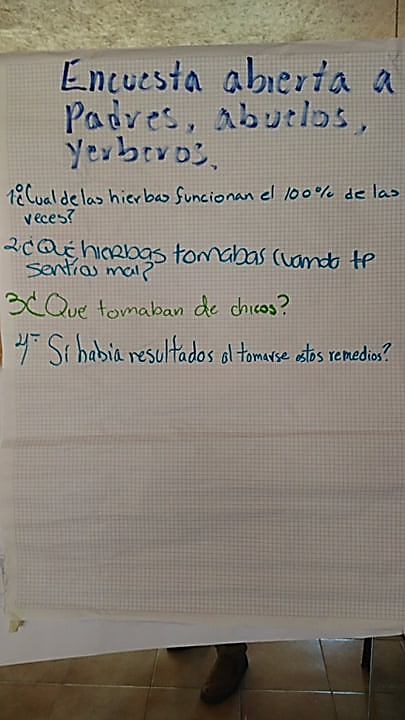 Encuesta abierta a
Padres, abuelos,
Yerberos.
1º¿Cual de las hierbas funcionan el 100% de las
veces?
2.¿Qué hierbas tomabas cuando te
sentías mal?
3¿Que tomaban de chicos?
4- Sí había resultados al tomarse estos remedios?